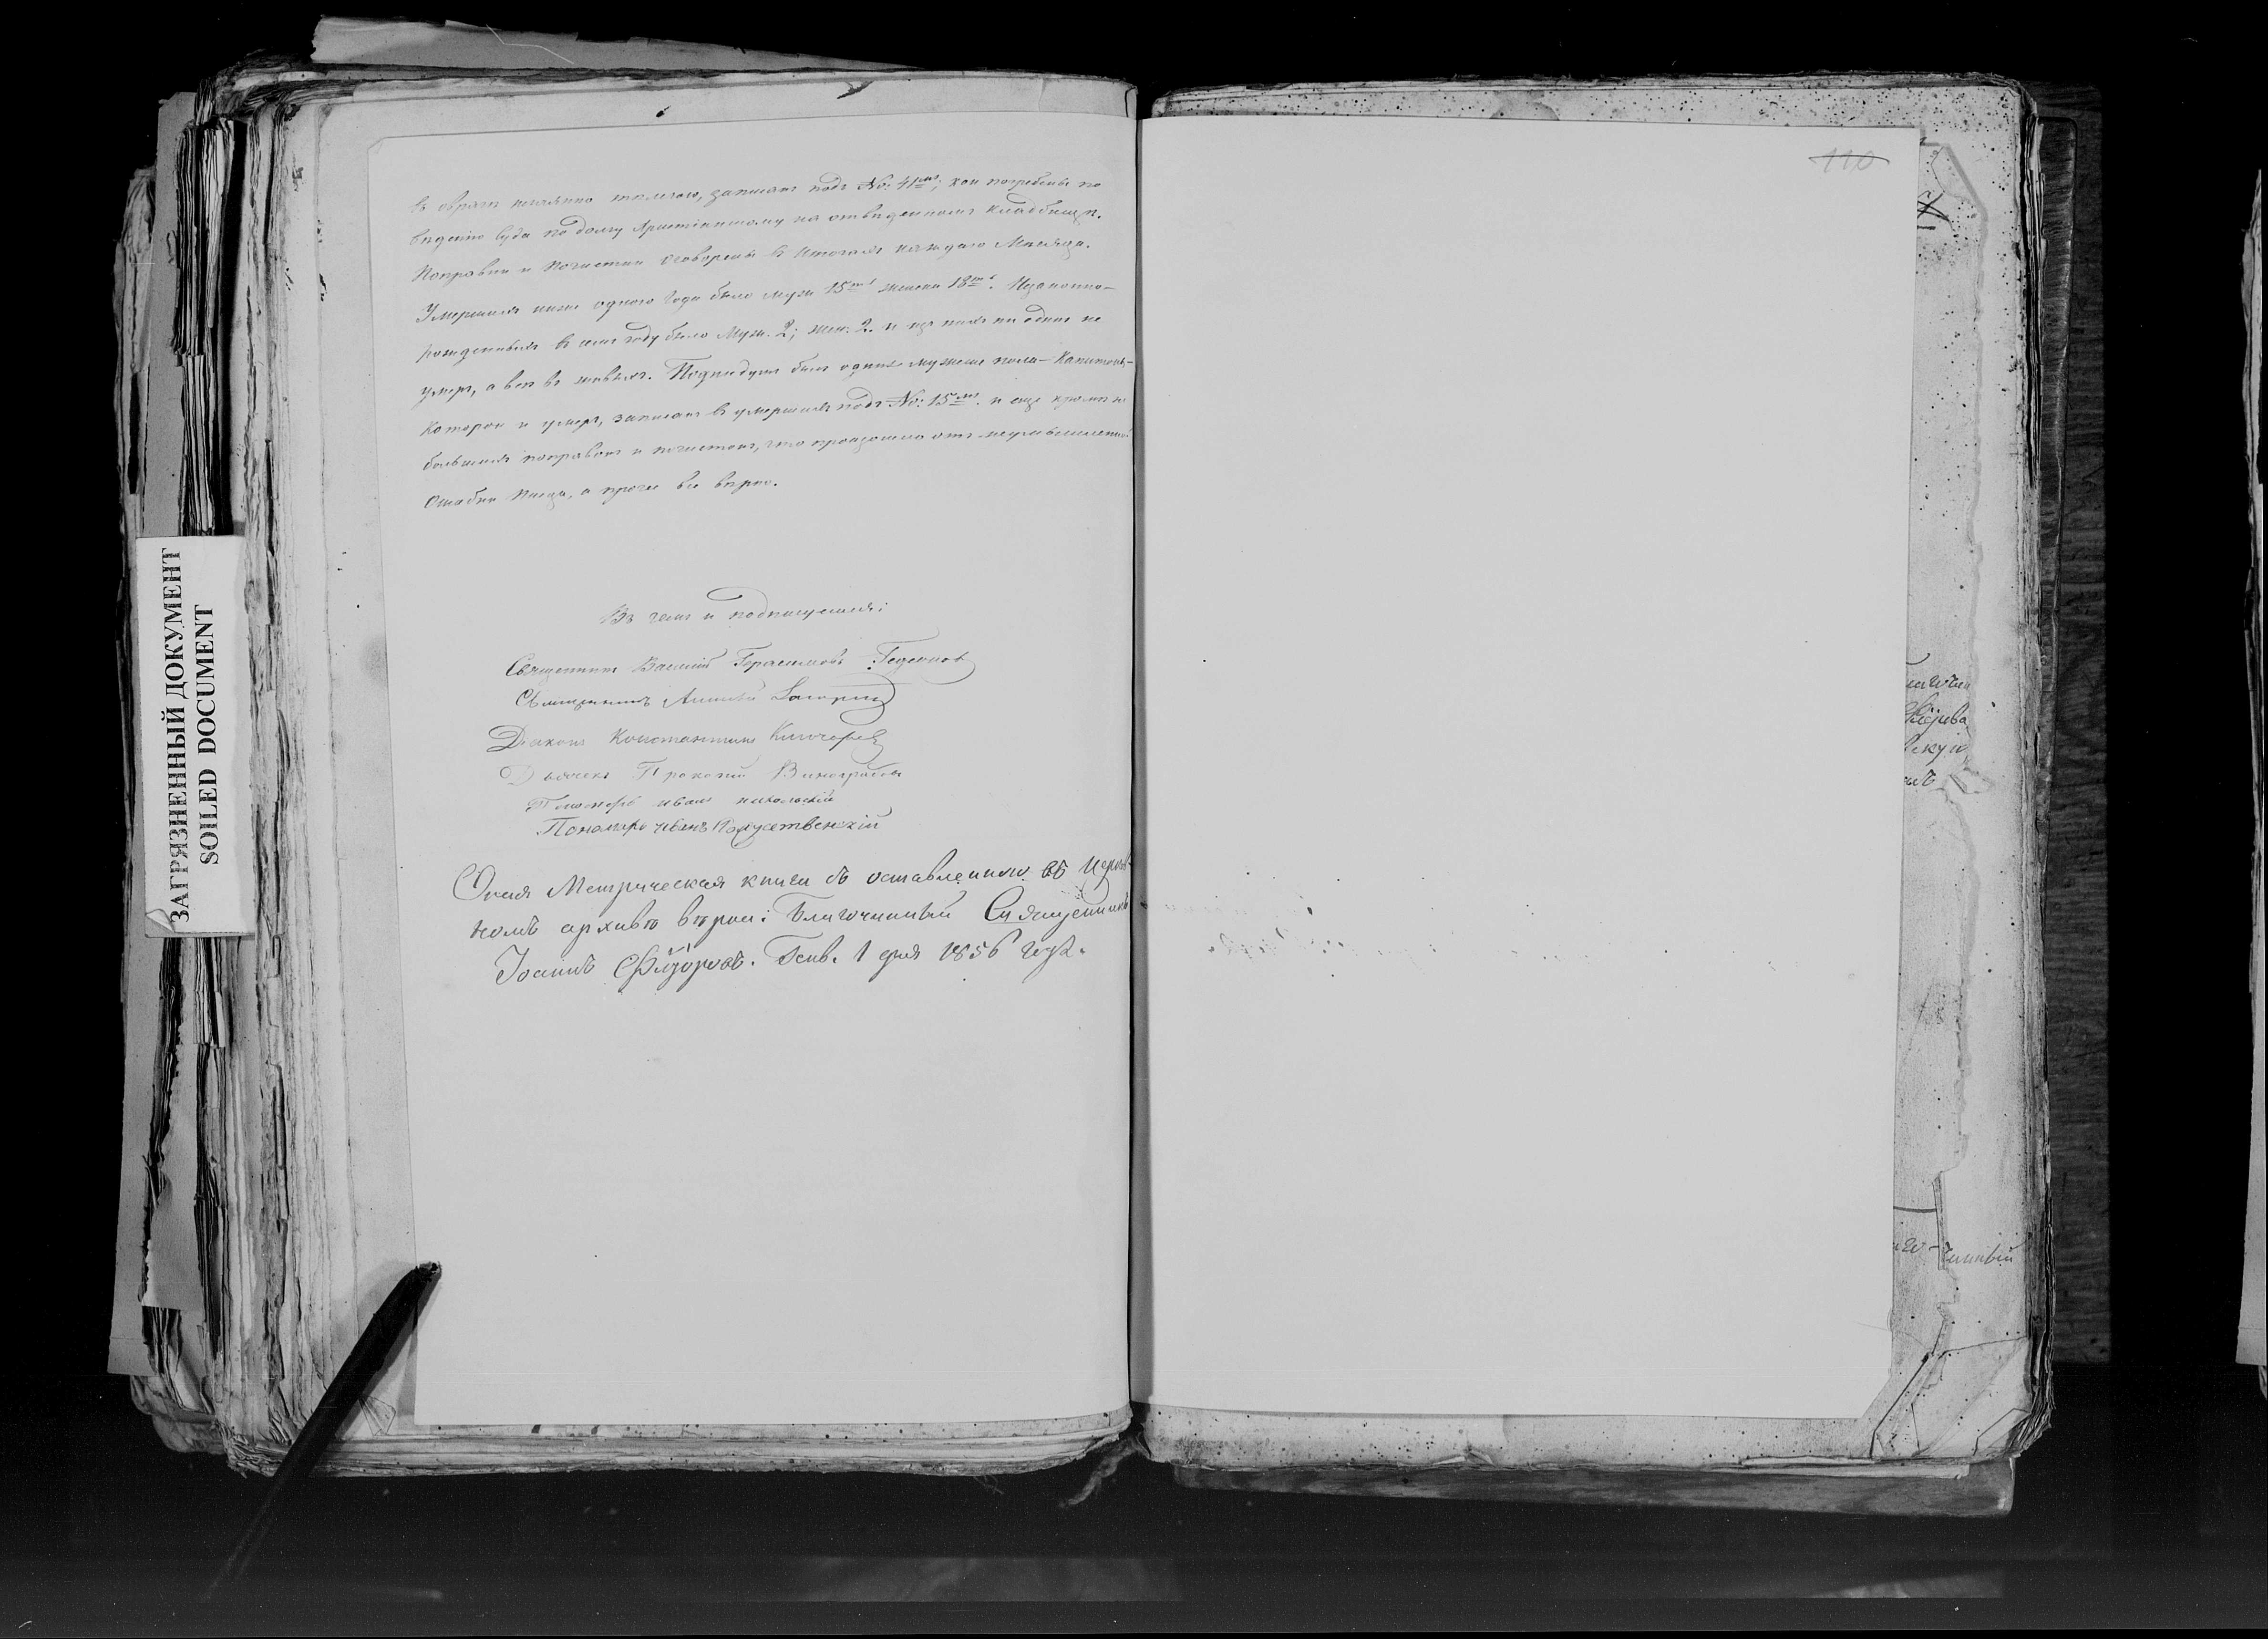 въ оврагѣ нечаянно землею, записанъ подъ №: 41мъ; кои погребены по
вѣденію Суда по долгу Христіанскому на отведенномъ кладбищѣ.
Поправки и почистки оговорены въ Итогахъ каждаго Мѣсяца.
Умершихъ ниже одного года было муж. 15ть женска 18ть. Незаконно-
рожденныхъ въ семъ году было Муж. 2; жен. 2. и изъ нихъ ни одинъ не
умеръ, а всѣ въ живыхъ. Подкидышъ былъ одинъ мужеска пола - Капитонъ,-
который и умеръ, записанъ въ умершихъ подъ №: 15мъ. и еще кромѣ
большихъ поправокъ и почистокъ, что произошло отъ неумышленной
ошибки писца, а прочее все вѣрно.
Въ чемъ и подписуемся:
Священникъ Василій Герасимовъ Гедеоновъ
Священникъ Алексѣй
Діаконъ Константинъ Ключаревъ
Дьячекъ Прокопій Виноградовъ
Пономарь иванъ никольскій
Пономарь иванъ Рождественскій
Оная Метрическая книга съ оставленною въ Церков-
номъ архивѣ вѣрна: Благочинный Священникъ
Іоаннъ Ѳедоровъ. Генв. 1 дня 1856 года.
110
ЗАГРЯЗНЕННЫЙ ДОКУМЕНТ
SOILED DOCUMENT